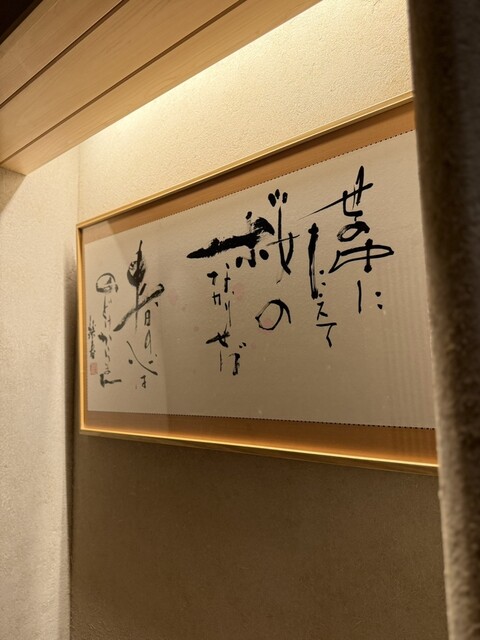 世の中に
たえて
桜の
なかりせば
春の心は
のどけからまし